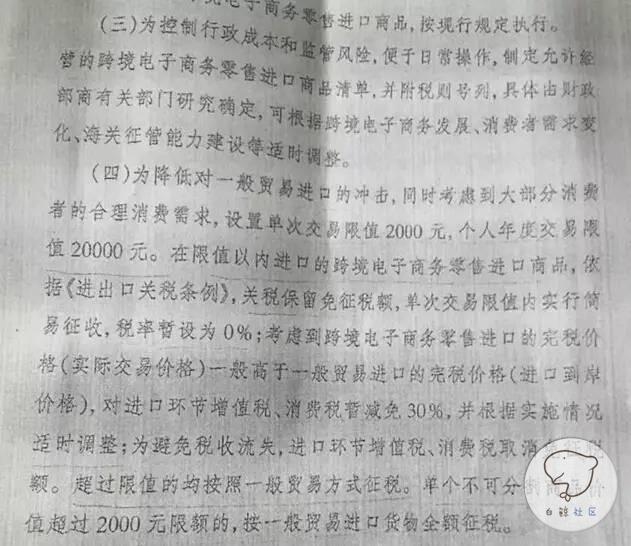 电子商务零售进口商品,按现行规定执行。
(三)为控制行政成本和监管风险,便于日常操作,制定允许经
营的跨境电子商务零售进口商品清单,并附税则号列,具体由财政
部商有关部门研究确定,可根据跨境电子商务发展、消费者需求变
化、海关征管能力建设等适时调整。
(四)为降低对一般贸易进口的冲击,同时考虑到大部分消费
者的合理消费需求,设置单次交易限值2000元,个人年度交易限
值20000元。在限值以内进口的跨境电子商务零售进口商品,依
据《进出口关税条例》,关税保留免征税额,单次交易限值内实行简
易征收,税率暂设为0%;考虑到跨境电子商务零售进口的完税价
格(实际交易价格)一般高于一般贸易进口的完税价格(进口到岸
价格),对进口环节增值税、消费税暂减免30%,并根据实施情况
适时调整;为避免税收流失,进口环节增值税、消费税取消
额。超过限值的均按照一般贸易方式征税。单个不可分
值超过2000元限额的,按一般贸易进口货物全额征税。
白鲸社区